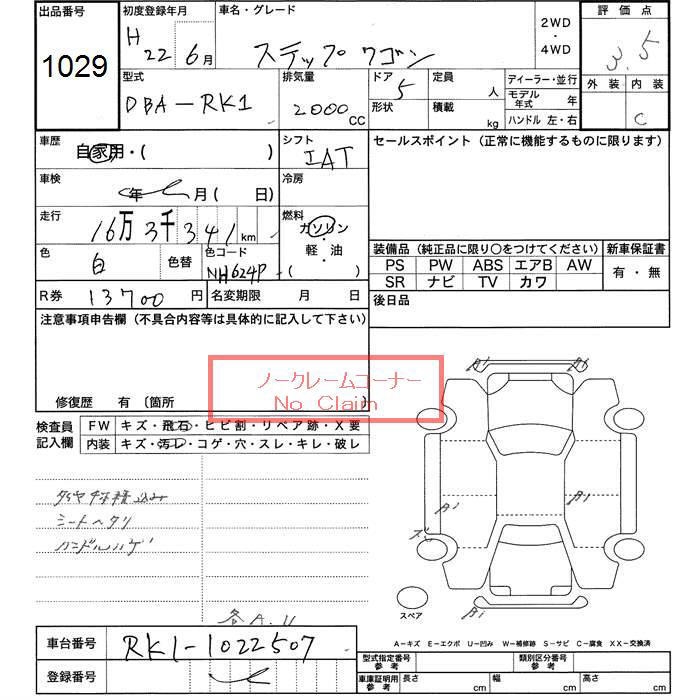 出品番号
1029
初度登録年月
H 22 6月
車名・グレード
ステップワゴン
2WD
・
4WD
評価点
3.5
外装 内装
C
型式
DBA-RK1
排気量
2000 CC
ドア 5
形状
定員 人
積載 kg
ディーラー・並行
モデル年式 年
ハンドル 左・右
車歴
自家用・( )
シフト
IAT
セールスポイント (正常に機能するものに限ります)
車検
年 月 ( 日)
冷房
走行
16万 3千 341 km
燃料
ガソリン
・
軽・油
・( )
色
白
色替
色コード
NH624P
装備品 (純正品に限り○をつけてください)
新車保証書
PS PW ABS エアB AW
SR ナビ TV カワ
有・無
R券 13700 円
名変期限 月 日
後日品
注意事項申告欄 (不具合内容等は具体的に記入して下さい)
ノークレームコーナー
No Claim
修復歴 有 〔箇所
検査員記入欄
FW キズ・飛石・ヒビ割・リペア跡・X要
内装 キズ・汚レ・コゲ・穴・スレ・キレ・破レ
タイヤ4本積込み
シートヘタリ
ハンドルハゲ
各A.U
スペア
A-キズ E-エクボ U-凹み W-補修跡 S-サビ C-腐食 XX-交換済
車台番号
RK1-1022507
登録番号
型式指定番号 参考
類別区分番号 参考
車庫証明用 参考
長さ cm
幅 cm
高さ cm